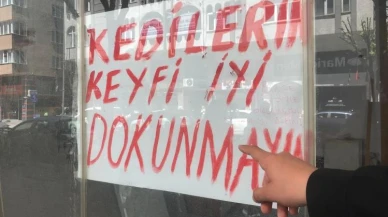 KEDİLERİN
KEYFİ İYİ
DOKUNMAYIN